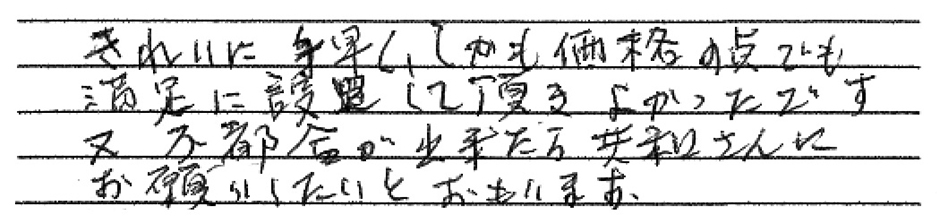 きれいに手早く、しかも価格の点でも
満足に設置して頂きよかったです
又不都合が出来たら共和さんに
お願いしたいとおもいます。